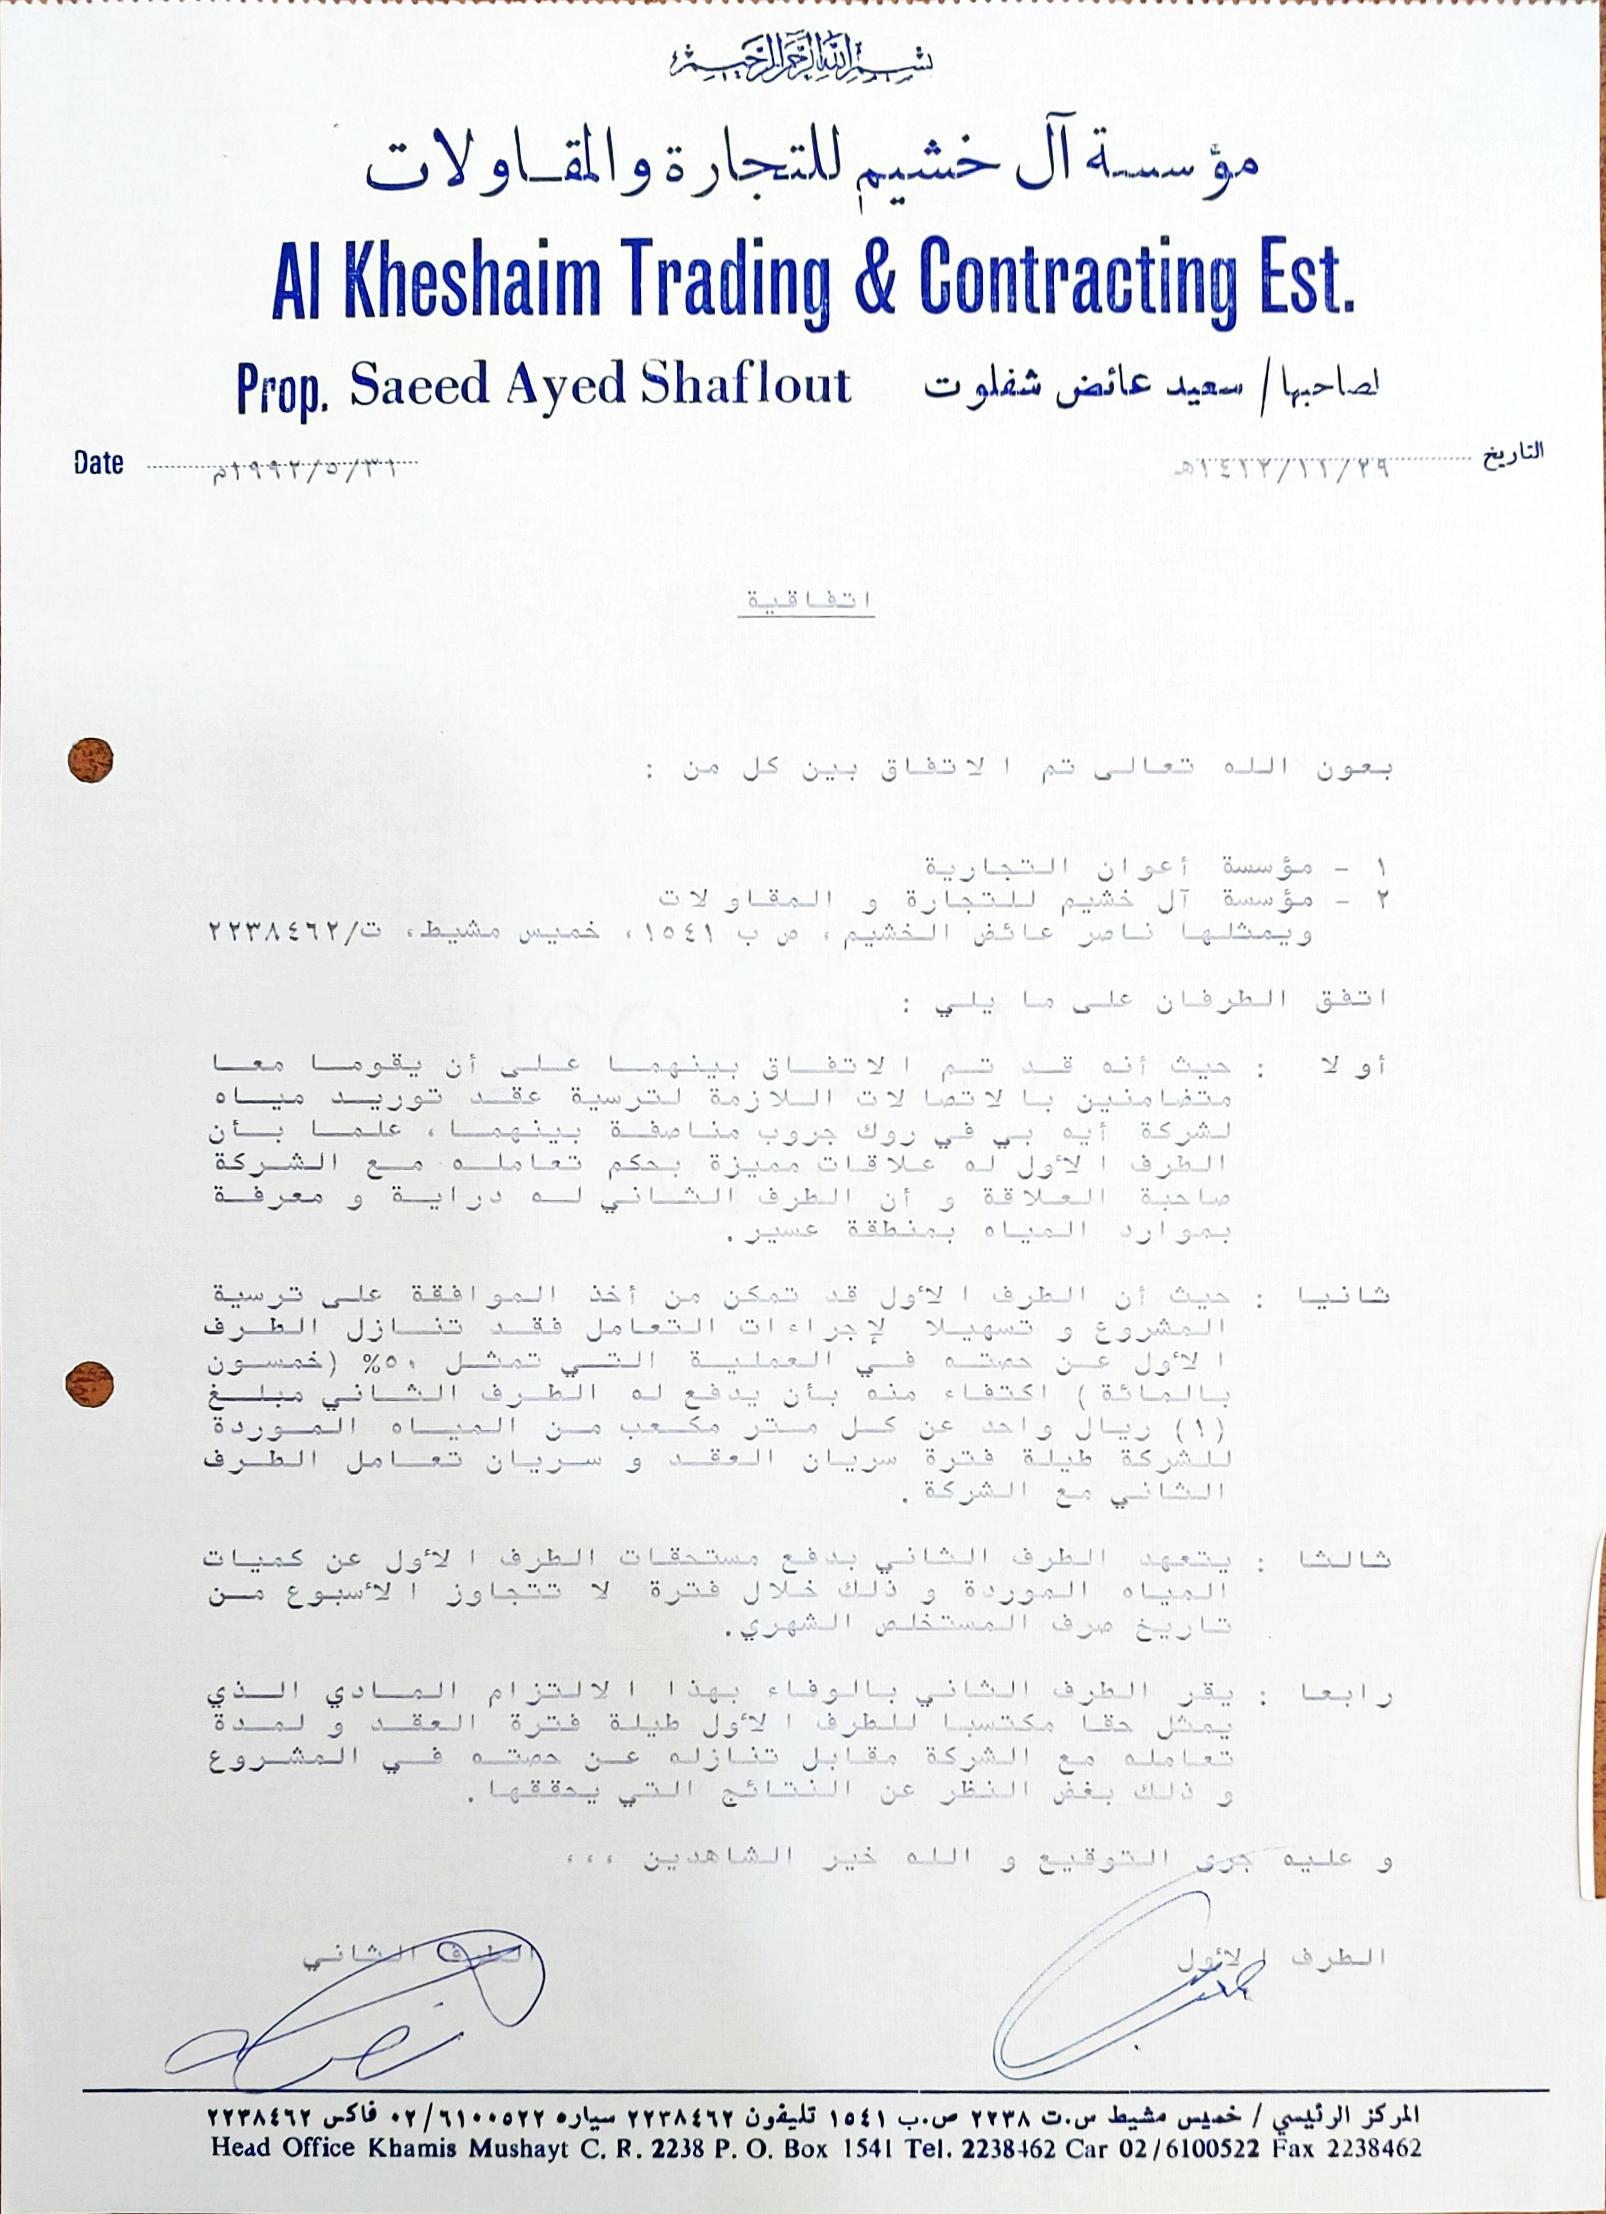 بسم الله الرحمن الرحيم
مؤسسة آل خشيم للتجارة والمقاولات
Al Kheshaim Trading & Contracting Est.
Prop. Saeed Ayed Shaflout لصاحبها/ سعيد عائض شفلوت
التاريخ ١٤١٢/١١/٢٩هـ Date ١٩٩٢/٥/٣١م
اتفاقية
بعون الله تعالى تم الاتفاق بين كل من :
١ - مؤسسة أعوان التجارية
٢ - مؤسسة آل خشيم للتجارة و المقاولات
ويمثلها ناصر عائض الخشيم، ص ب ١٥٤١، خميس مشيط، ت/٢٢٣٨٤٦٢
اتفق الطرفان على ما يلي :
أولا : حيث أنه قد تم الاتفاق بينهما على أن يقوما معا
متضامنين بالاتصالات اللازمة لترسية عقد توريد مياه
لشركة أيه بي في روك جروب مناصفة بينهما، علما بأن
الطرف الأول له علاقات مميزة بحكم تعامله مع الشركة
صاحبة العلاقة و أن الطرف الثاني له دراية و معرفة
بموارد المياه بمنطقة عسير.
ثانيا : حيث أن الطرف الأول قد تمكن من أخذ الموافقة على ترسية
المشروع و تسهيلا لإجراءات التعامل فقد تنازل الطرف
الأول عن حصته في العملية التي تمثل ٥٠% (خمسون
بالمائة) اكتفاء منه بأن يدفع له الطرف الثاني مبلغ
(١) ريال واحد عن كل متر مكعب من المياه الموردة
للشركة طيلة فترة سريان العقد و سريان تعامل الطرف
الثاني مع الشركة .
ثالثا : يتعهد الطرف الثاني بدفع مستحقات الطرف الأول عن كميات
المياه الموردة و ذلك خلال فترة لا تتجاوز الأسبوع من
تاريخ صرف المستخلص الشهري.
رابعا : يقر الطرف الثاني بالوفاء بهذا الالتزام المادي الذي
يمثل حقا مكتسبا للطرف الأول طيلة فترة العقد و لمدة
تعامله مع الشركة مقابل تنازله عن حصته في المشروع
و ذلك بغض النظر عن النتائج التي يحققها.
و عليه جرى التوقيع و الله خير الشاهدين ،،،
الطرف الأول الطرف الثاني
المركز الرئيسي / خميس مشيط س.ت ٢٢٣٨ ص.ب ١٥٤١ تليفون ٢٢٣٨٤٦٢ سياره ٠٢/٦١٠٠٥٢٢ فاكس ٢٢٣٨٤٦٢
Head Office Khamis Mushayt C. R. 2238 P. O. Box 1541 Tel. 2238462 Car 02/6100522 Fax 2238462